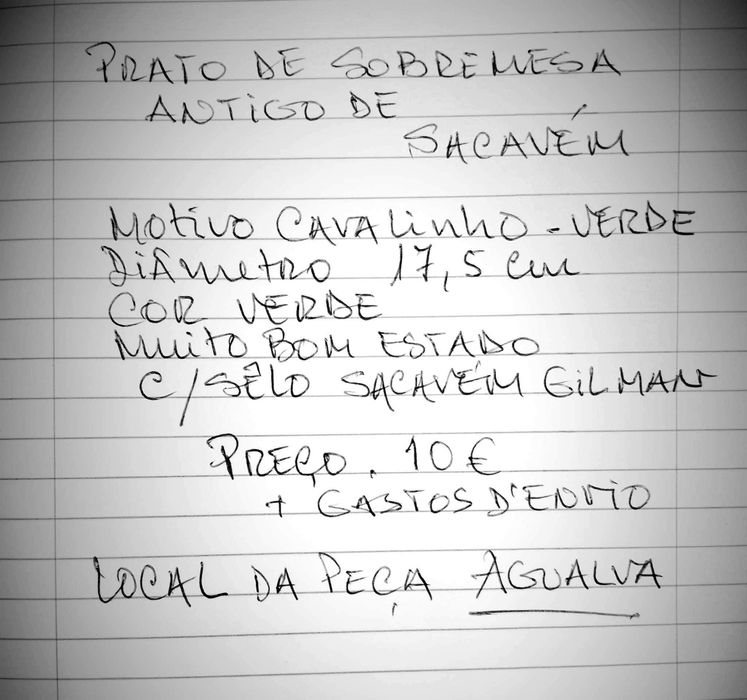 PRATO DE SOBREMESA
ANTIGO DE
SACAVÉM
MOTIVO CAVALINHO - VERDE
DIÂMETRO 17,5 cm
COR VERDE
MUITO BOM ESTADO
C/SÊLO SACAVÉM GILMAN
PREÇO. 10 €
+ GASTOS D'ENVIO
LOCAL DA PEÇA AGUALVA